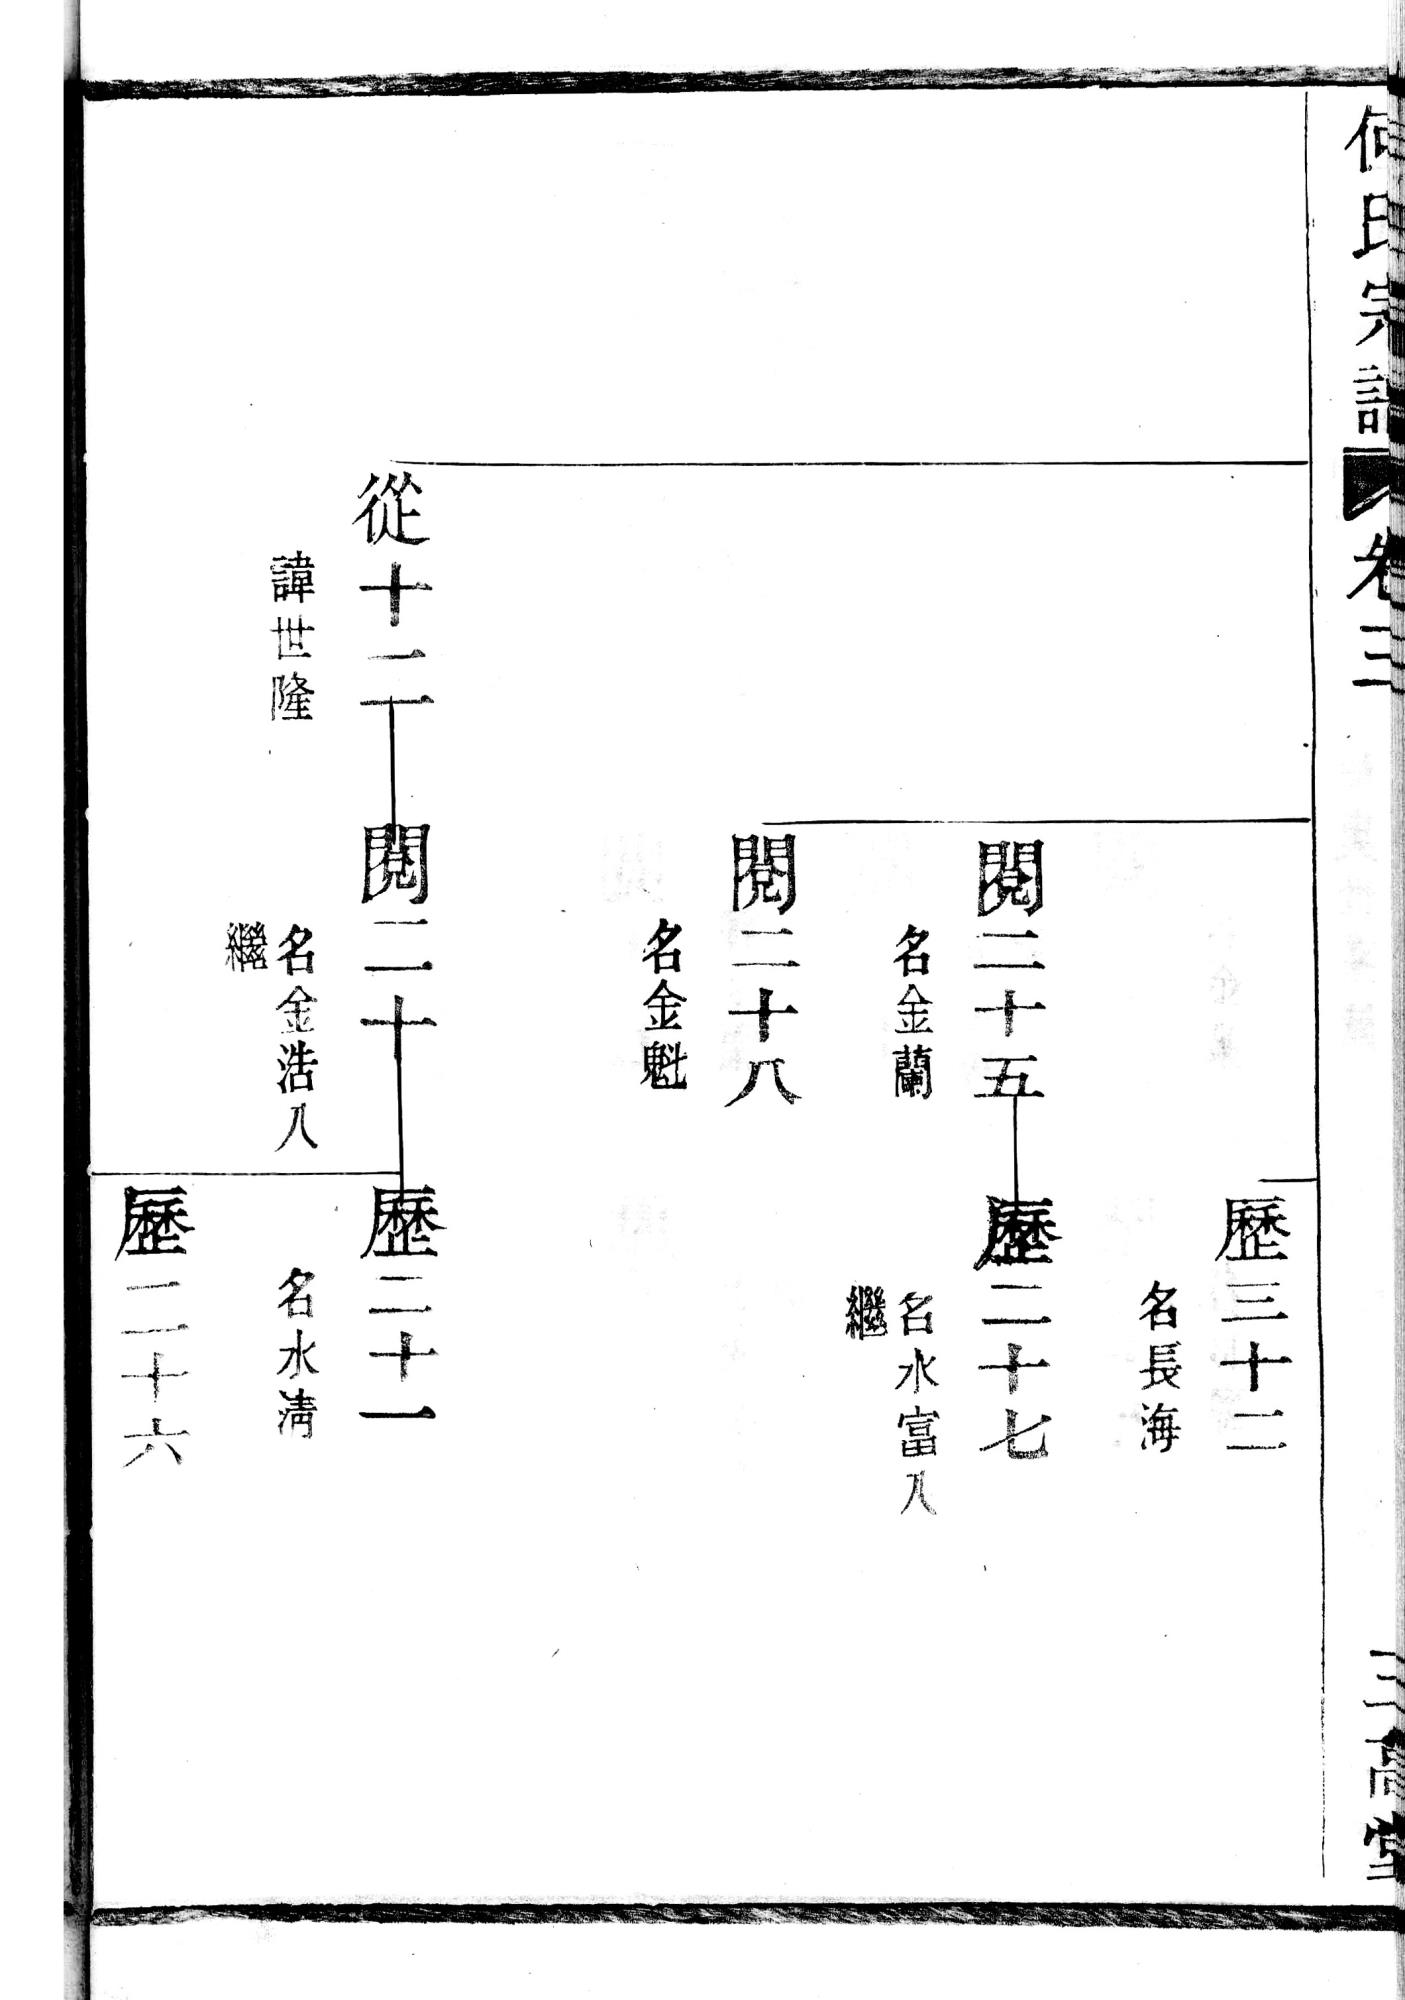 何氏宗譜
卷三
三高堂
歷三十二
名長海
閱二十五
名金蘭
歷二十七
名水富入
繼
閱二十八
名金魁
從十二
諱世隆
閱二十
名金浩入
繼
歷二十一
名水淸
歷二十六